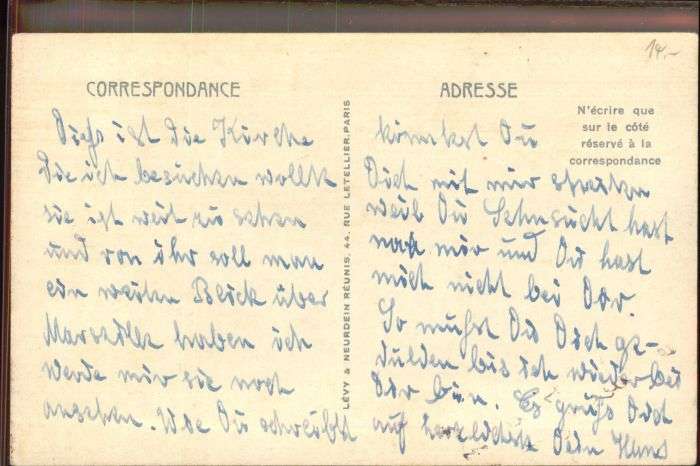 14.-
CORRESPONDANCE
Dies ist die Kirche
die ich besuchen wollte
sie ist weit zu sehen
und von ihr soll man
ein weiten Blick über
Marseille haben ich
werde mir sie noch
ansehen. Wie Du schreibst
LÉVY & NEURDEIN RÉUNIS, 44, RUE LETELLIER, PARIS
ADRESSE
N'écrire que
sur le côté
réservé à la
correspondance
könntest Du
Dich mit mir streiten
weil Du Sehnsucht hast
nach mir und Du hast
mich nicht bei Dir.
So mußt Du Dich ge-
dulden bis ich wieder bei
Dir bin. Es grüßt Dich
auf herzlichste Dein Hans